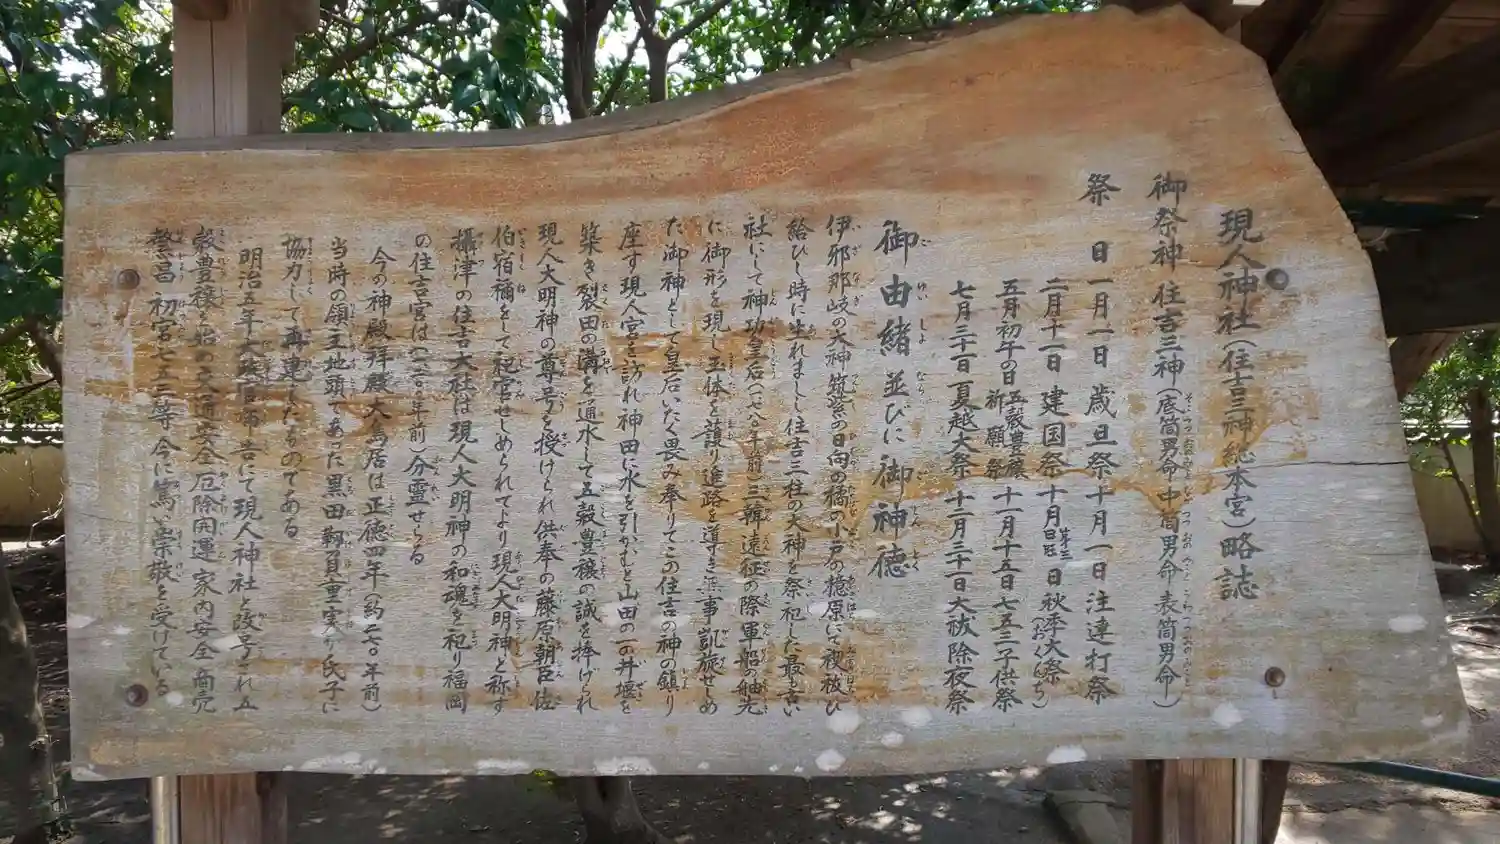 現人神社（住吉三神総本宮）略誌
御祭神 住吉三神（底筒男命 中筒男命 表筒男命）
祭日 一月一日 歳旦祭 十月一日 注連打祭
二月十一日 建国祭 十月第三日曜日 秋季大祭（おくんち）
五月初午の日 五穀豊穣祈願祭 十一月十五日 七五三子供祭
七月三十日 夏越大祭 十二月三十一日 大祓除夜祭
御由緒並びに御神徳
伊邪那岐の大神筑紫の日向の橘の小戸の檍原にて禊祓ひ
給ひし時に生れましし住吉三柱の大神を祭祀した最も古い
社にして神功皇后（一七八〇年前）三韓遠征の際軍船の舳先
に御形を現し玉体を護り進路を導き無事凱旋せしめ
た御神として皇后いたく畏み奉りてこの住吉の神の鎮り
座す現人宮を訪れ神田に水を引かむと山田の一の井堰を
築き裂田の溝を通水して五穀豊穣の誠を捧げられ
現人大明神の尊号を授けられ供奉の藤原朝臣佐
伯宿禰をして祀官せしめられてより現人大明神と称す
攝津の住吉大社は現人大明神の和魂を祀り福岡
の住吉宮は（一二〇〇年前）分霊せらる
今の神殿拝殿大鳥居は正徳四年（約二七〇年前）
当時の領主地頭であった黒田靱負重実が氏子に
協力して再建したものである
明治五年太政官布告にて現人神社と改号され五
穀豊穣を始め交通安全厄除開運家内安全商売
繁昌 初宮七五三等今に篤い崇敬を受けている